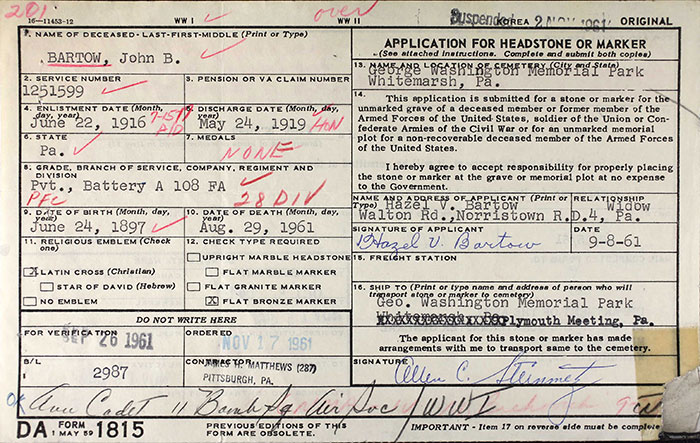 201
16—11453-12 WW I / over WW II Suspend KOREA 2 NOV 1961 ORIGINAL
1. NAME OF DECEASED-LAST-FIRST-MIDDLE (Print or Type)
BARTOW, John B.
2. SERVICE NUMBER
1251599
3. PENSION OR VA CLAIM NUMBER
4. ENLISTMENT DATE (Month, day, year)
June 22, 1916
5. DISCHARGE DATE (Month, day, year)
May 24, 1919 HON
6. STATE
Pa.
7. MEDALS
NONE
8. GRADE, BRANCH OF SERVICE, COMPANY, REGIMENT AND
DIVISION
Pvt., Battery A 108 FA
PFC 28 DIV
9. DATE OF BIRTH (Month, day, year)
June 24, 1897
10. DATE OF DEATH (Month, day, year)
Aug. 29, 1961
11. RELIGIOUS EMBLEM (Check one)
X LATIN CROSS (Christian)
STAR OF DAVID (Hebrew)
NO EMBLEM
12. CHECK TYPE REQUIRED
UPRIGHT MARBLE HEADSTONE
FLAT MARBLE MARKER
FLAT GRANITE MARKER
X FLAT BRONZE MARKER
DO NOT WRITE HERE
FOR VERIFICATION
SEP 26 1961
ORDERED
NOV 17 1961
B/L
2987
CONTRACTOR
JAMES H. MATTHEWS (287)
PITTSBURGH, PA.
APPLICATION FOR HEADSTONE OR MARKER
(See attached instructions. Complete and submit both copies)
13. NAME AND LOCATION OF CEMETERY (City and State)
George Washington Memorial Park
Whitemarsh, Pa.
14.
This application is submitted for a stone or marker for the
unmarked grave of a deceased member or former member of the
Armed Forces of the United States, soldier of the Union or Con-
federate Armies of the Civil War or for an unmarked memorial
plot for a non-recoverable deceased member of the Armed Forces
of the United States.
I hereby agree to accept responsibility for properly placing
the stone or marker at the grave or memorial plot at no expense
to the Government.
NAME AND ADDRESS OF APPLICANT (Print or Type)
RELATIONSHIP
Hazel V. Bartow Widow
Walton Rd., Norristown R.D.4, Pa.
SIGNATURE OF APPLICANT
Hazel V. Bartow
DATE
9-8-61
15. FREIGHT STATION
16. SHIP TO (Print or type name and address of person who will
transport stone or marker to cemetery)
Geo. Washington Memorial Park
Whitemarsh, Pa.
Plymouth Meeting, Pa.
The applicant for this stone or marker has made
arrangements with me to transport same to the cemetery.
SIGNATURE
Allen C. Steinmetz
OK Avn Cadet 11 Bomb Sq Air Svc WWI
DA FORM 1815
1 MAY 59
PREVIOUS EDITIONS OF THIS
FORM ARE OBSOLETE.
IMPORTANT - Item 17 on reverse side must be complete